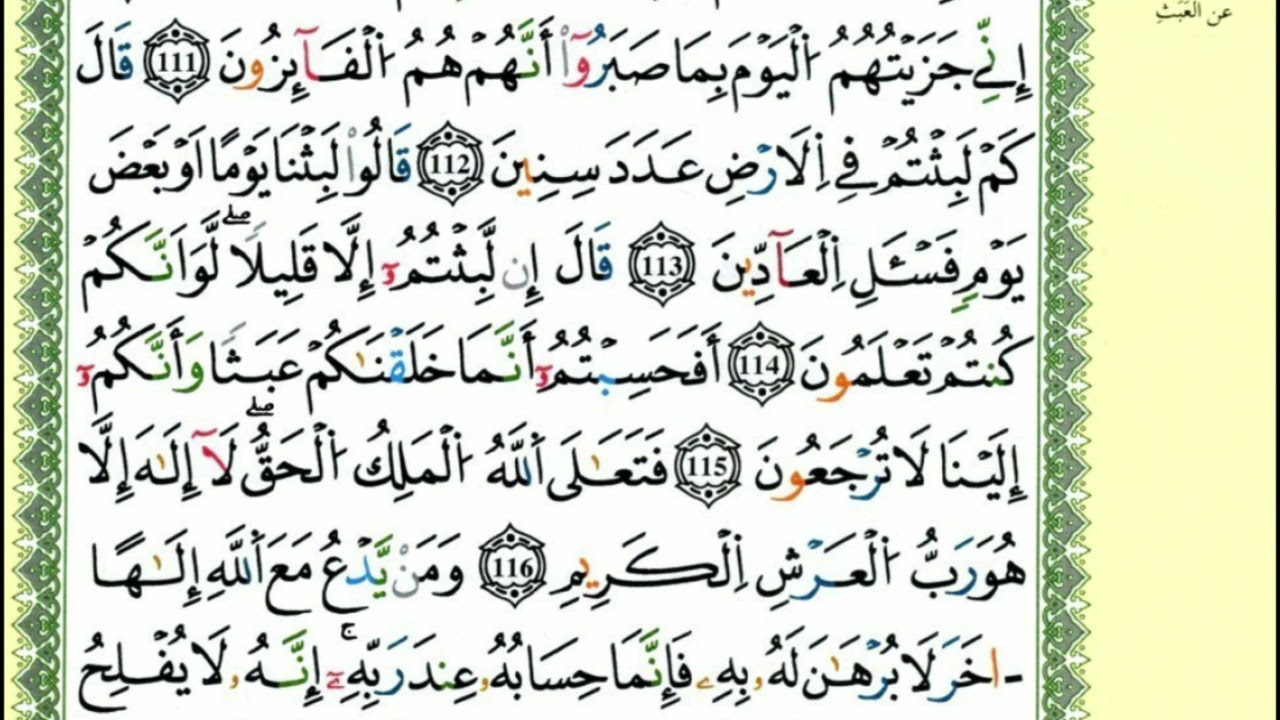 عن العَبَثِ
إِنِّے جَزَيْتُهُمُ اُ۬لْيَوْمَ بِمَا صَبَرُوٓاْ أَنَّهُمْ هُمُ اُ۬لْفَآئِزُونَ 111 قَالَ
كَمْ لَبِثْتُمْ فِے اِ۬لَارْضِ عَدَدَ سِنِينَ 112 قَالُواْ لَبِثْنَا يَوْماً اَوْ بَعْضَ
يَوْمٖ فَسْـَٔلِ اِ۬لْعَآدِّينَ 113 قَالَ إِن لَّبِثْتُمُۥٓ إِلَّا قَلِيلاٗۖ لَّوَ اَنَّكُمْ
كُنتُمْ تَعْلَمُونَ 114 أَفَحَسِبْتُمُۥٓ أَنَّمَا خَلَقْنَٰكُمْ عَبَثاٗ وَأَنَّكُمُۥٓ
إِلَيْنَا لَا تُرْجَعُونَ 115 فَتَعَٰلَى اَ۬للَّهُ اُ۬لْمَلِكُ اُ۬لْحَقُّۖ لَآ إِلَٰهَ إِلَّا
هُوَ رَبُّ اُ۬لْعَرْشِ اِ۬لْكَرِيمِ 116 وَمَنْ يَّدْعُ مَعَ اَ۬للَّهِ إِلَٰهاً
ـ اخَرَ لَا بُرْهَٰنَ لَهُۥ بِهِۦ فَإِنَّمَا حِسَابُهُۥ عِندَ رَبِّهِۦٓۚ إِنَّهُۥ لَا يُفْلِحُ